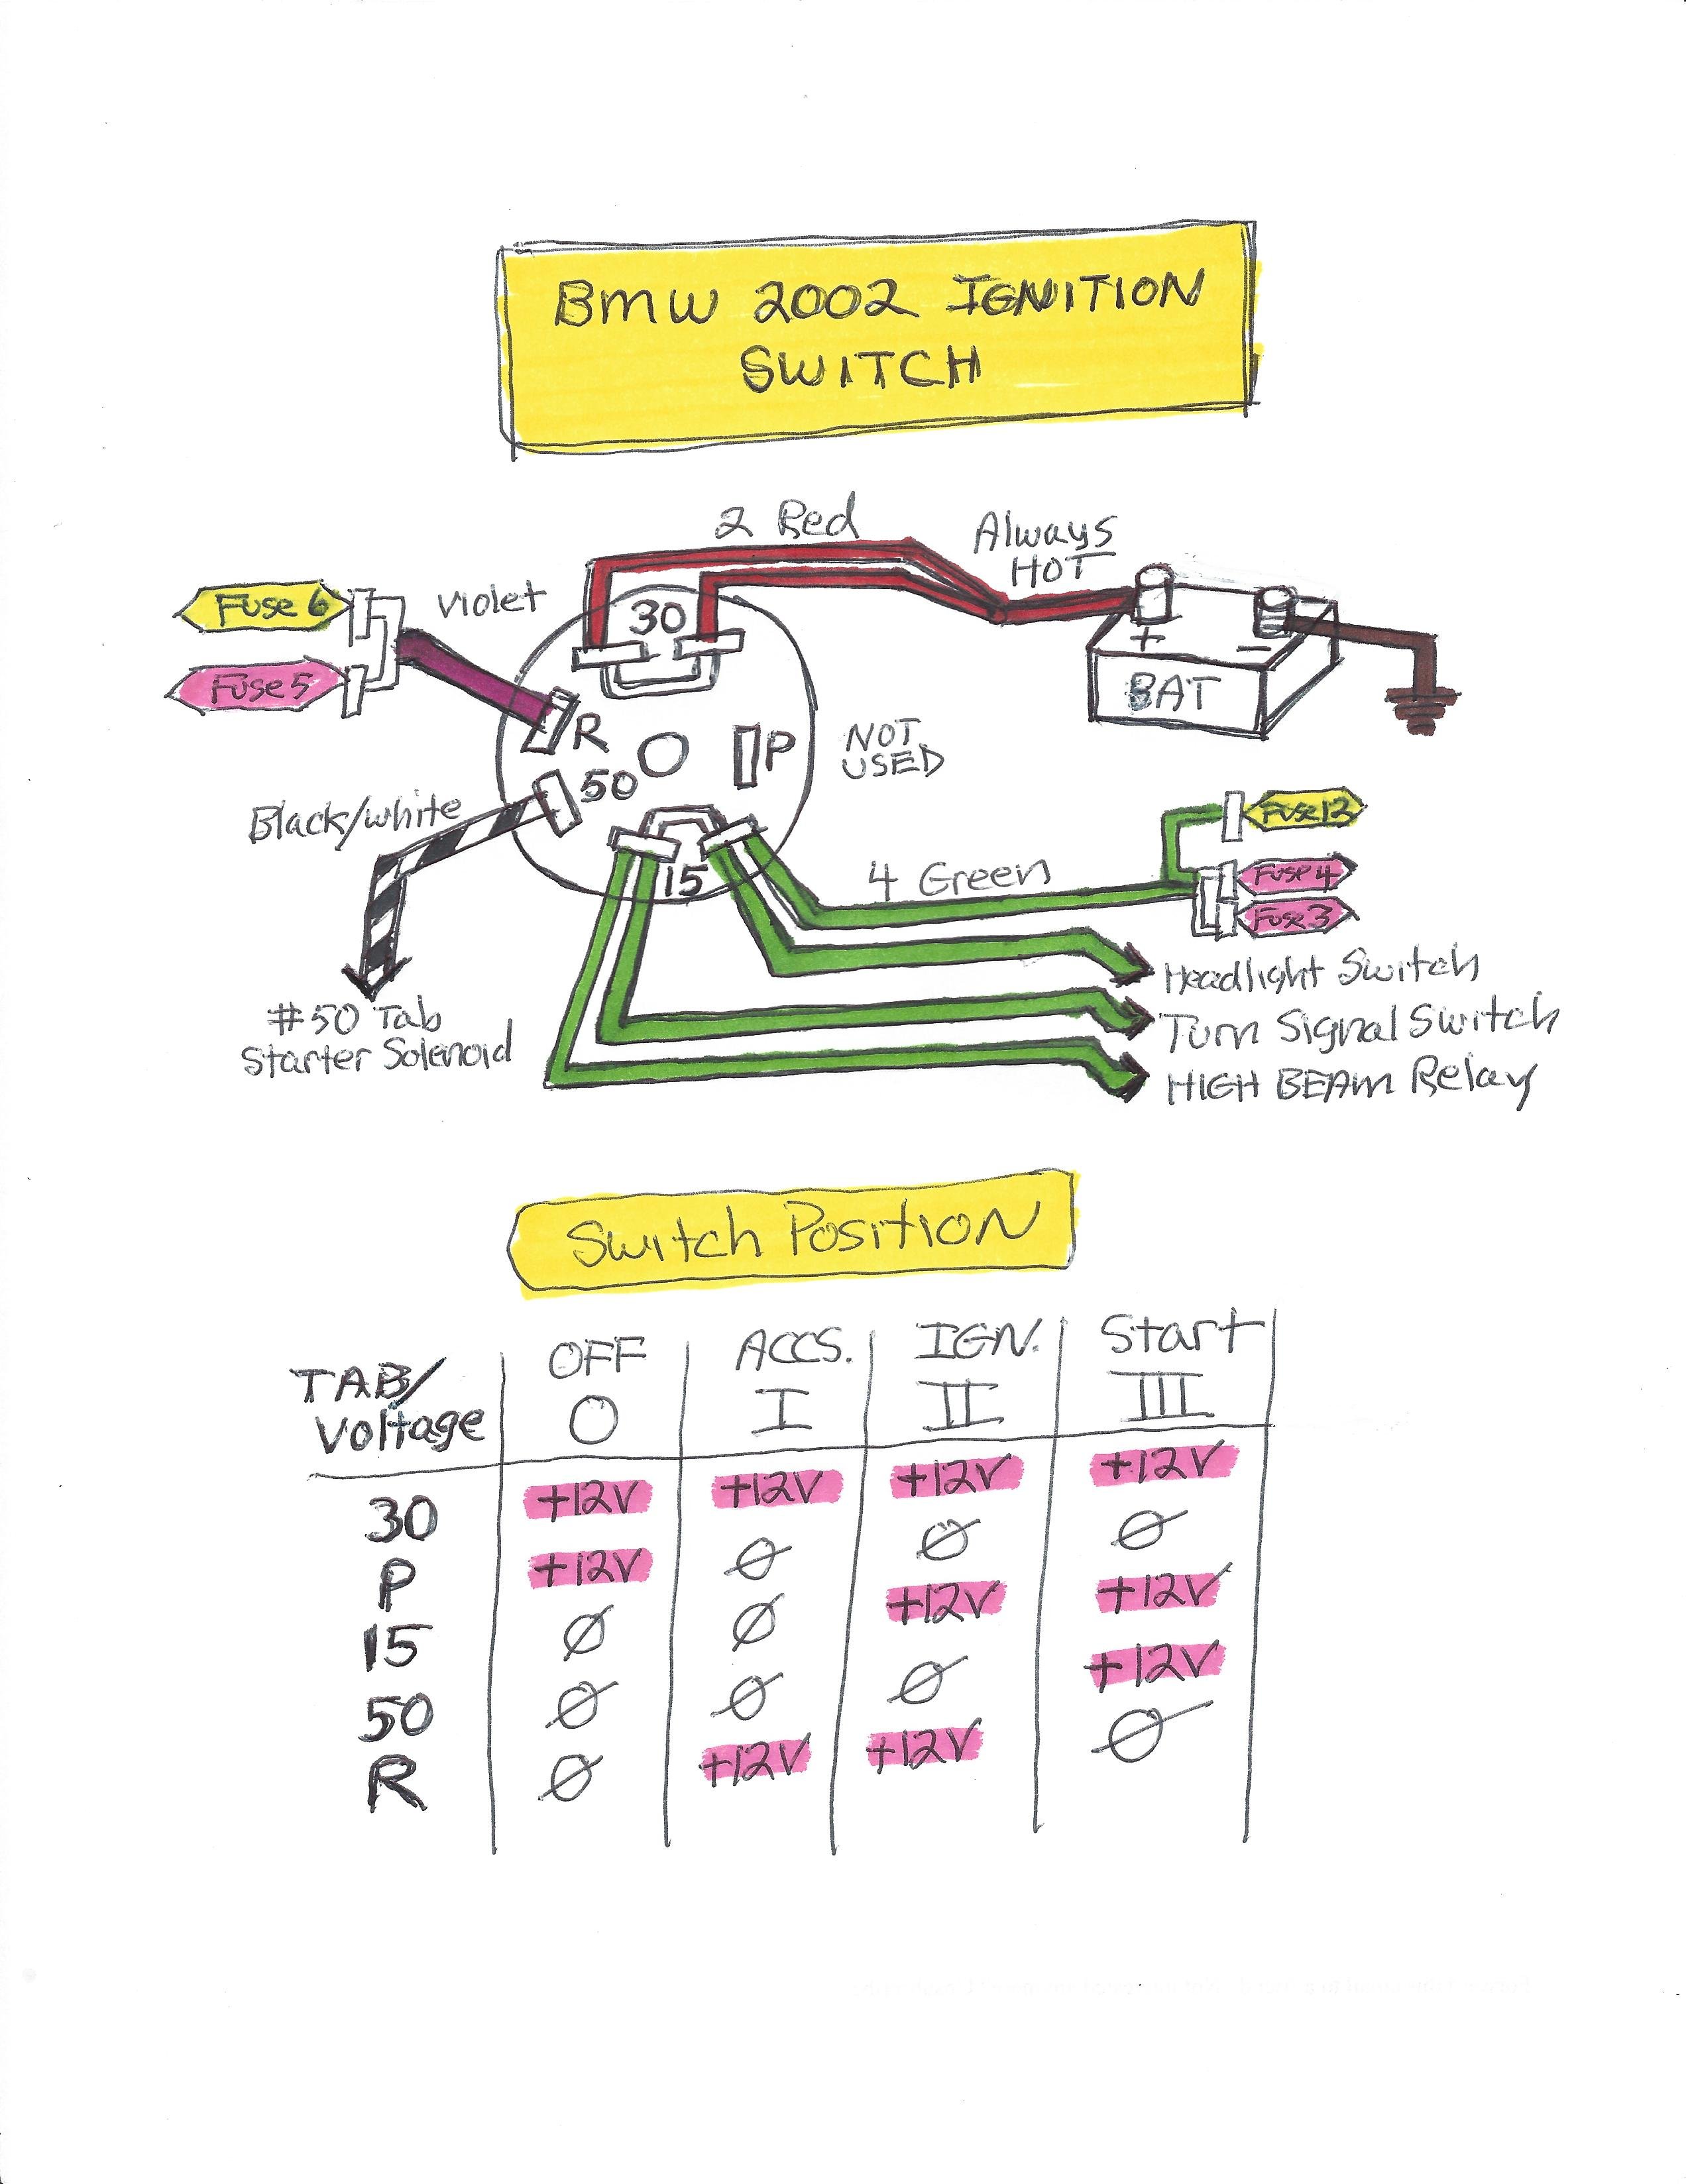 BMW 2002 IGNITION
SWITCH
2 Red
Always
HOT
Fuse 6
Violet
30
+
−
BAT
Fuse 5
R
P
NOT
USED
50
Black/white
Fuse 12
4 Green
Fuse 4
15
Fuse 3
Headlight Switch
#50 Tab
Starter Solenoid
Turn Signal Switch
HIGH BEAM Relay
Switch Position
TAB/
Voltage
OFF ACCS. IGN. Start
O I II III
30 +12V +12V +12V +12V
P +12V Ø Ø Ø
15 Ø Ø +12V +12V
50 Ø Ø Ø +12V
R Ø +12V +12V Ø